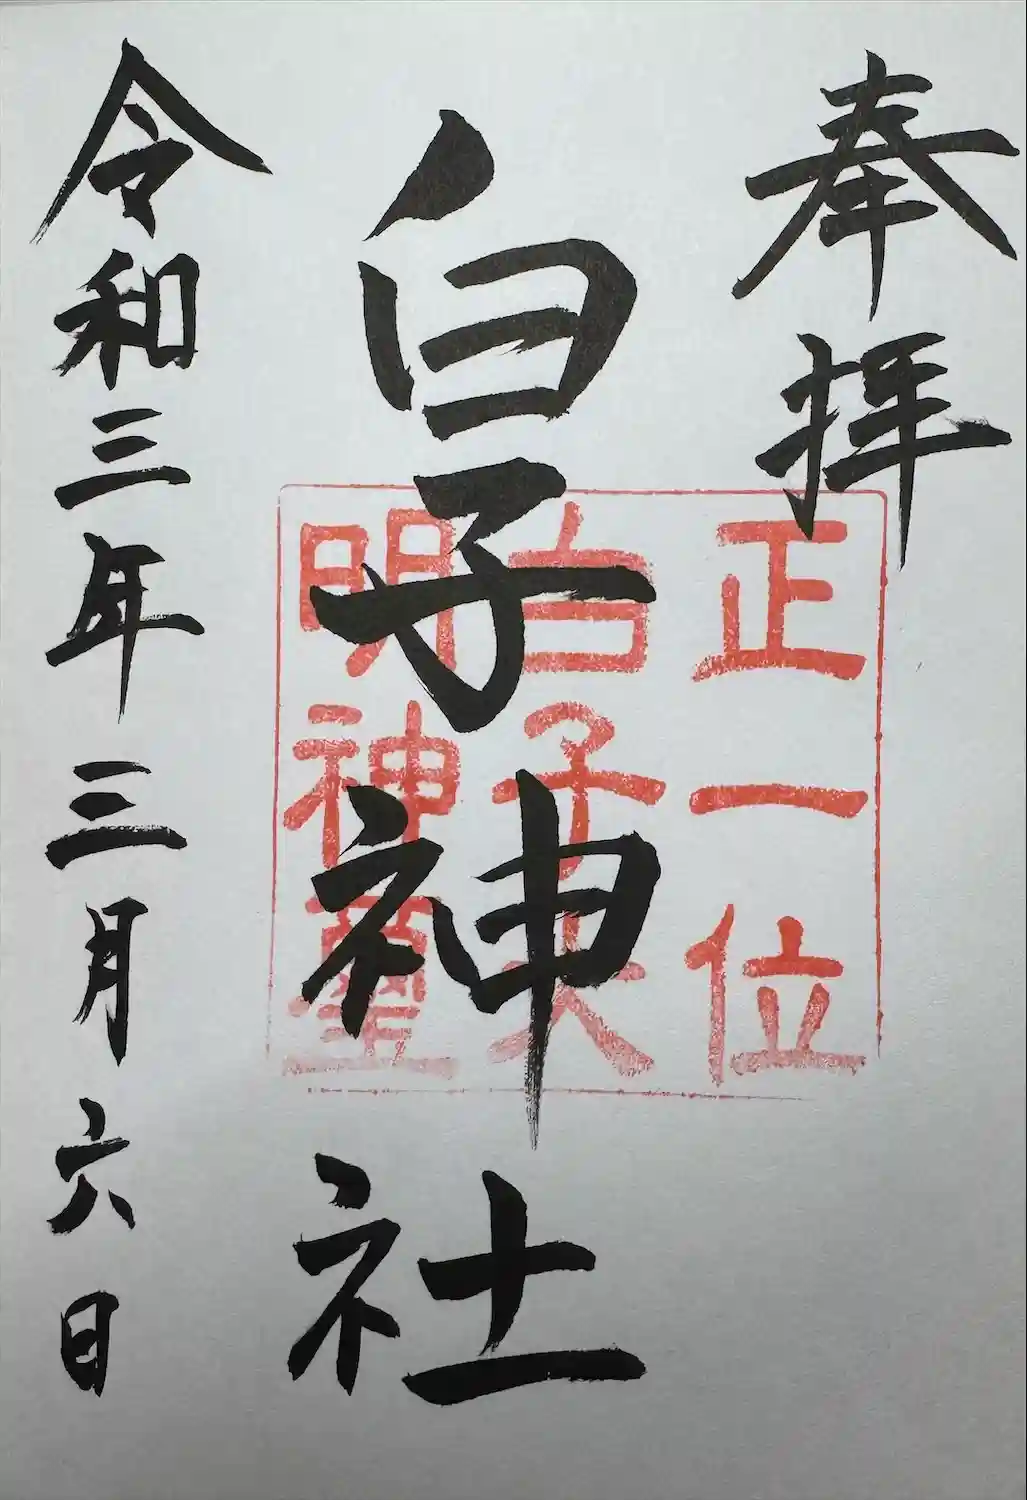 奉拝
白子神社
正一位
白子大
明神璽
令和三年三月六日